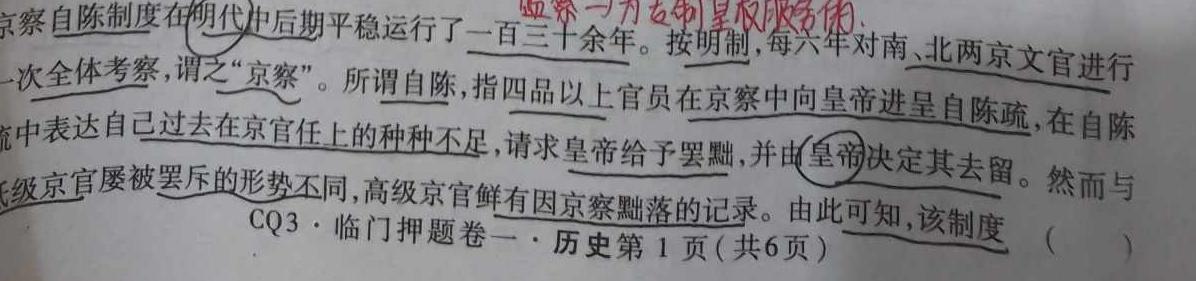 监察→为君制皇权服务的.
京察自陈制度在明代中后期平稳运行了一百三十余年。按明制,每六年对南、北两京文官进行
一次全体考察,谓之“京察”。所谓自陈,指四品以上官员在京察中向皇帝进呈自陈疏,在自陈
疏中表达自己过去在京官任上的种种不足,请求皇帝给予罢黜,并由皇帝决定其去留。然而与
低级京官屡被罢斥的形势不同,高级京官鲜有因京察黜落的记录。由此可知,该制度 ( )
CQ3·临门押题卷一·历史第1页(共6页)